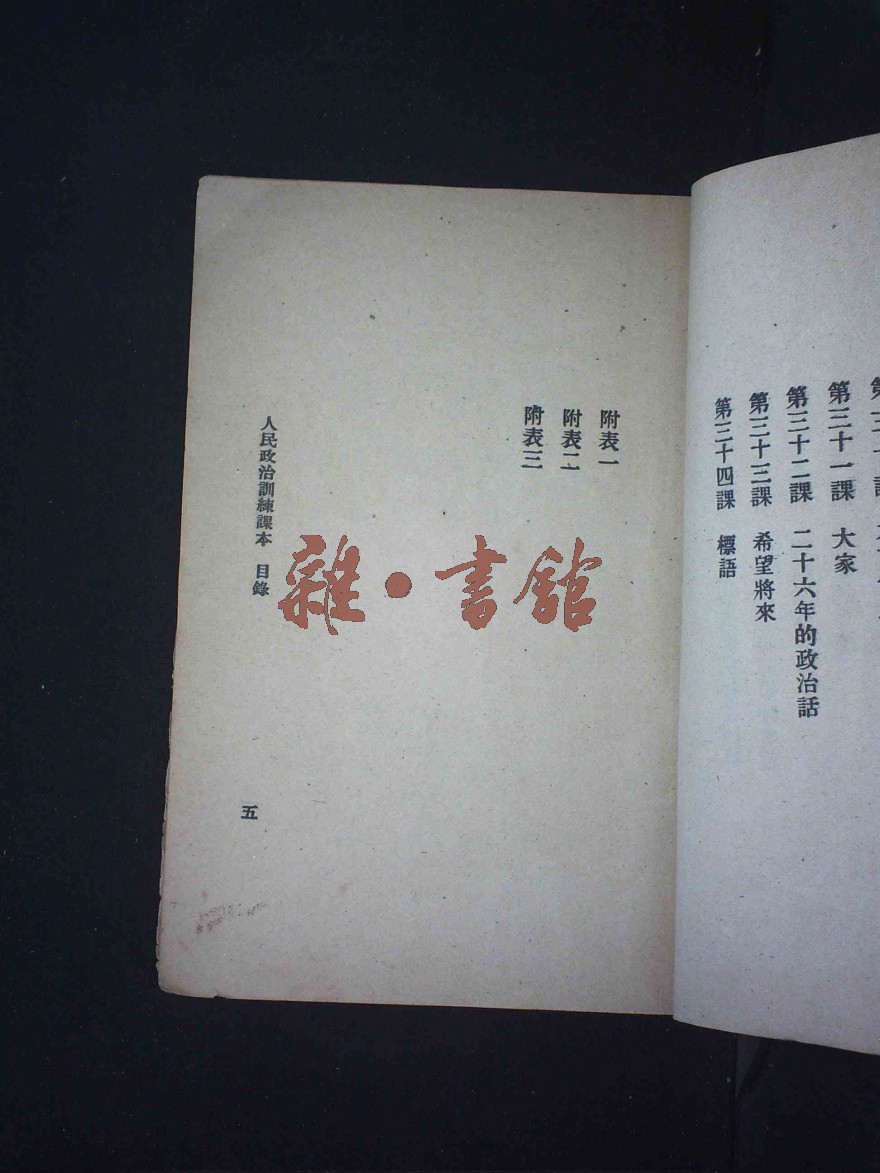 第三十一課　大家
第三十二課　二十六年的政治話
第三十三課　希望將來
第三十四課　標語
附表一
附表二
附表三
人民政治訓練課本　目錄
五
雜·書館